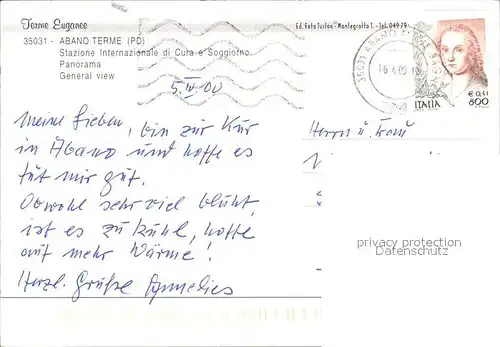 Terme Euganee
Ed. Foto Turlon - Montegrotto T. - Tel. 04979
35031 - ABANO TERME (PD)
Stazione Internazionale di Cura e Soggiorno
Panorama
General view
35031 ABANO
€ 0,41
800
ITALIA
5. IV. 00
Meine Lieben, bin zur Kur
in Abano und hoffe es
tut mir gut.
Obwohl sehr viel blüht,
ist es zu kühl, hoffe
auf mehr Wärme!
Herzl. Grüße Annelies
Herrn u. Frau
privacy protection
Datenschutz